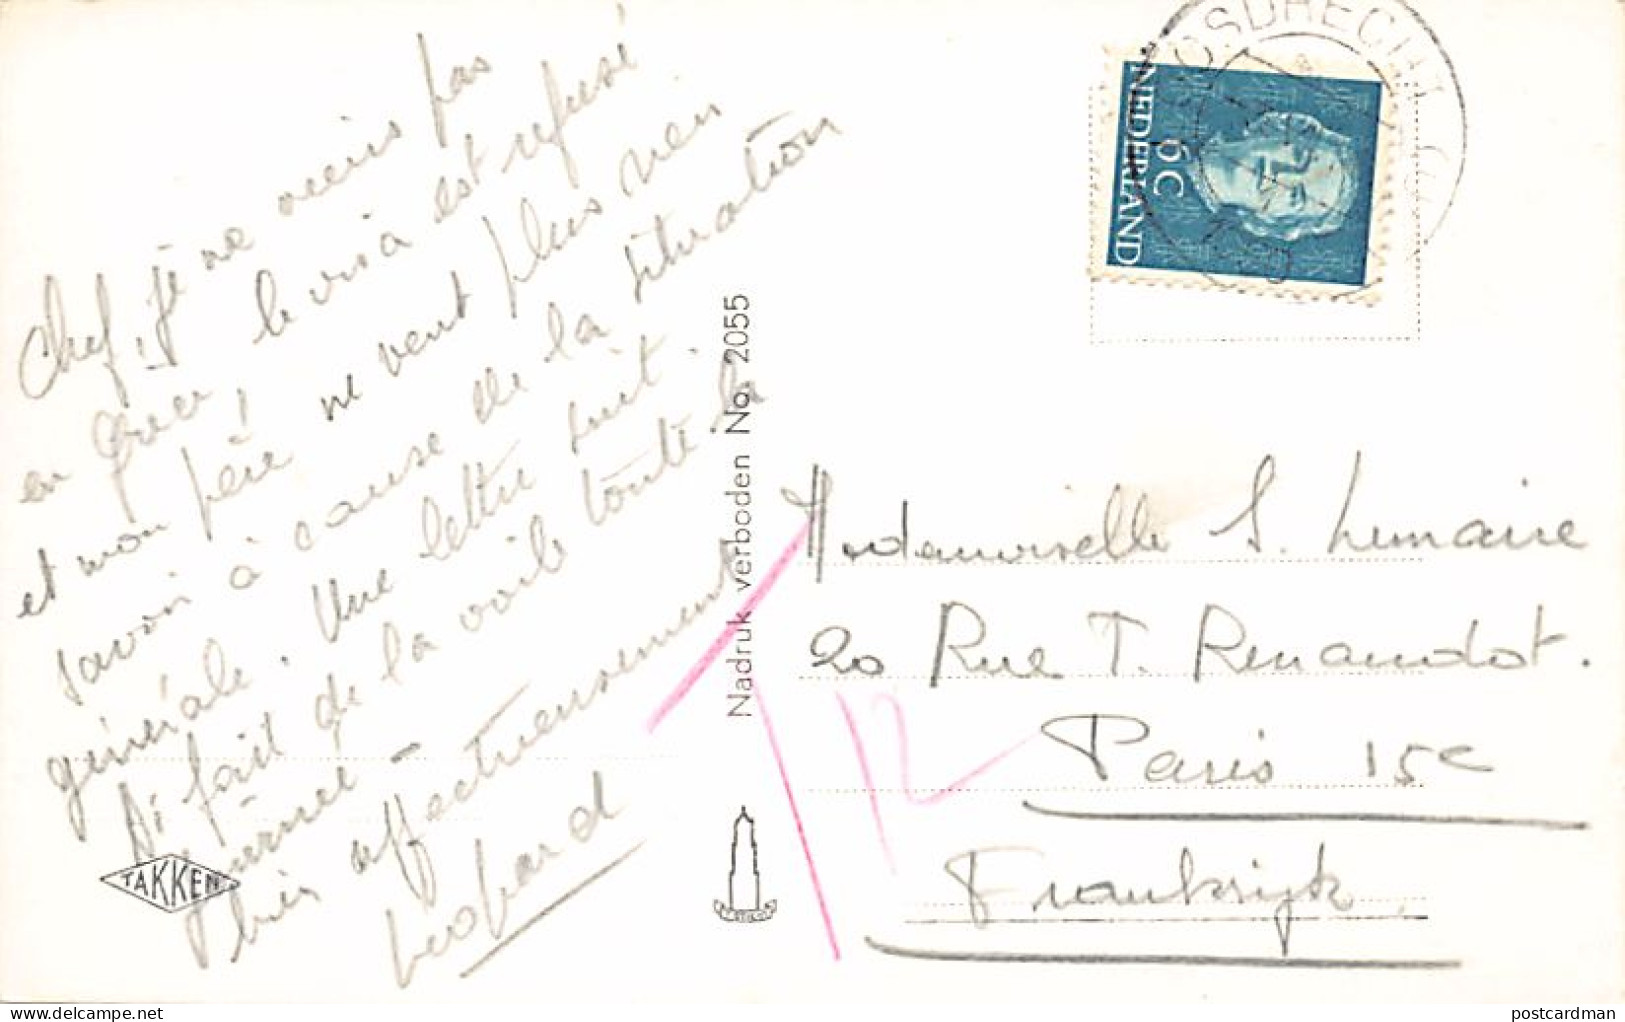 Chef, je ne viens pas
en Grèce, le visa est refusé
et mon père ne veut plus rien
savoir à cause de la situation
générale. Une lettre suit.
Ai fait de la voile toute la
journée -
bien affectueusement
Léopard
TAKKEN
Nadruk verboden No. 2055
NEDERLAND
6 C
OOSDRECHT
Mademoiselle S. Lemaire
20 Rue T. Renaudot.
Paris 15e
Frankrijk.
T 12
postcardman